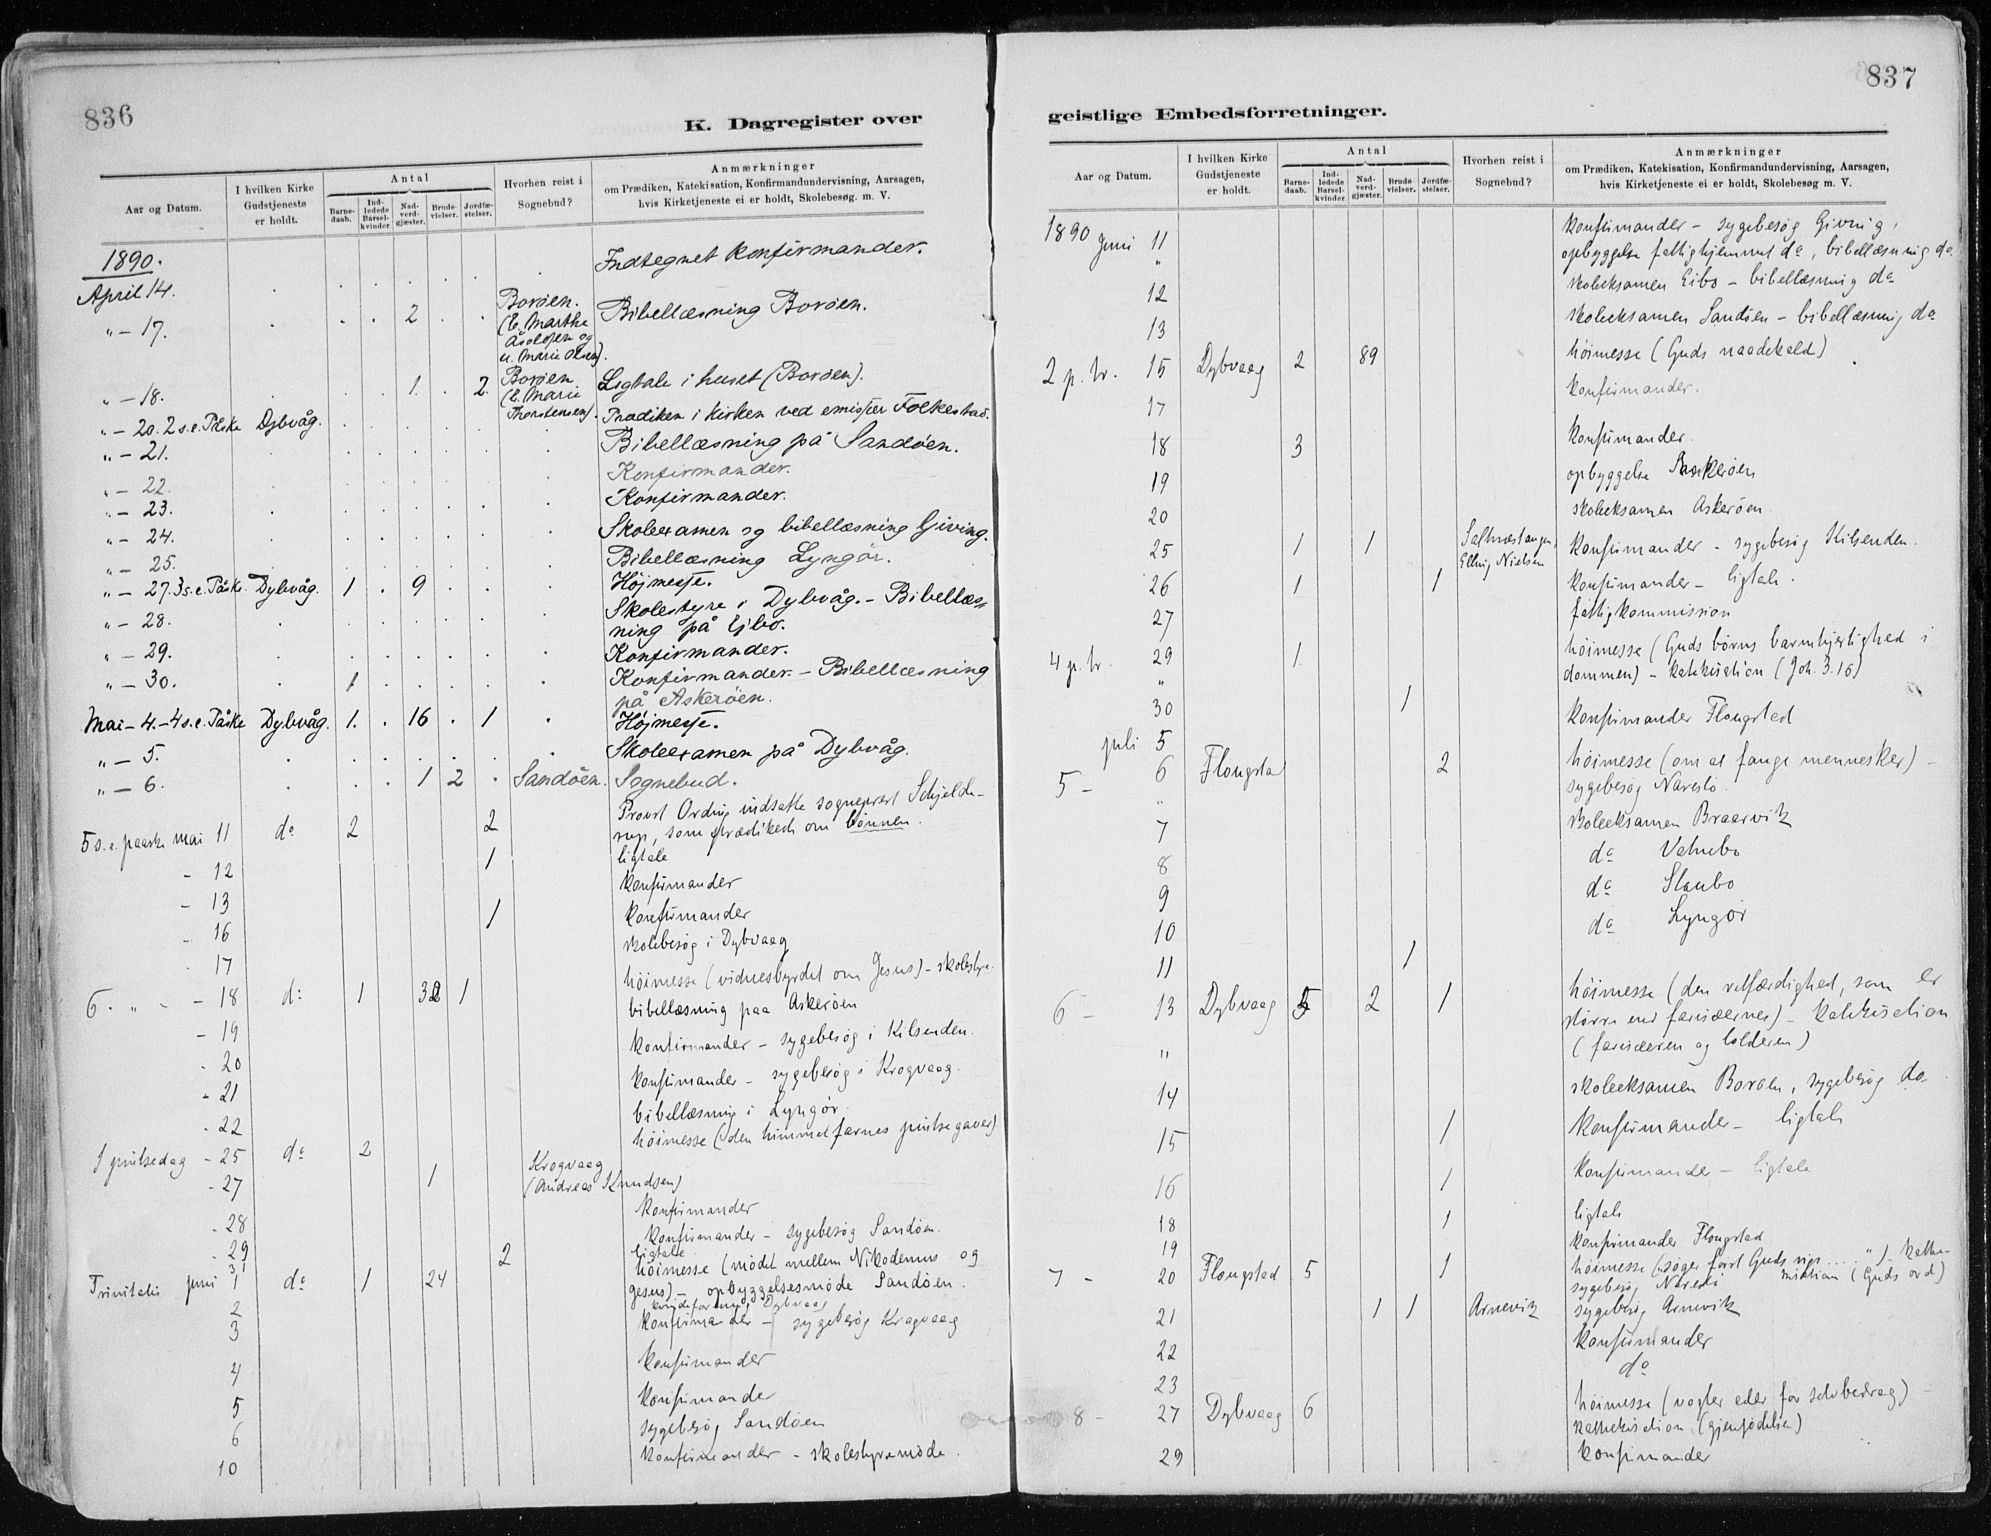 836
K. Dagregister over
Aar og Datum.
I hvilken Kirke Gudstjeneste er holdt.
Antal
Barne-daab.
Ind-ledede Barsel-kvinder.
Nad-verd-gjæster.
Brude-vielser.
Jordfæ-stelser.
Hvorhen reist i Sognebud?
Anmærkninger
om Prædiken, Katekisation, Konfirmandundervisning, Aarsagen,
hvis Kirketjeneste ei er holdt, Skolebesøg. m. V.
1890.
April 14. Indtegnet Konfirmander.
" - 17. 2 Borøen. Bibellæsning Borøen.
(E. Marthe
Asolsen og
u. Marie Olsen).
" - 18. 1. 2. Borøen Ligtale i huset (Borøen).
(E. Marie
Thorstensen).
" - 20. 2 s.e. Påske Dybvåg. Prædiken i Kirken ved emissær Folkestad.
" - 21. Bibellæsning på Sandøen.
" - 22. Konfirmander.
" - 23. Konfirmander.
" - 24. Skoleexamen og bibellæsning Giving.
" - 25. Bibellæsning Lyngør.
" - 27. 3 s.e. Påske Dybvåg. 1 9 Højmesse.
" - 28. Skolestyre i Dybvåg. - Bibellæs-
ning på Ejbo.
" - 29. Konfirmander.
" - 30. 1 Konfirmander. - Bibellæsning
på Askerøen.
Mai - 4. - 4 s.e. Påske Dybvåg. 1. 16 1 Højmesse.
" - 5. Skoleexamen på Dybvåg.
" - 6. 1 2 Sandøen. Sognebud.
5 s. e. paaske mai 11 do 2 2 Provst Ording indsatte sogneprest Schjelde-
rup, som prædikede om bønnen.
- 12 1 ligtale
- 13 konfirmander
- 16 1 konfirmander
- 17 skolebesøg i Dybvaag
6 " " - 18 do 1 32 1 høimesse (vidnesbyrdet om Jesus) - skolestyre.
- 19 bibellæsning paa Askerøen
- 20 konfirmander - sygebesøg i Kilsenden.
- 21 konfirmander - sygebesøg i Krogvaag.
- 22 bibellæsning i Lyngør.
1 pintsedag - 25 do 2 høimesse (den himmelfarnes pintsegaver)
- 27 1 Krogvaag
(Andreas Knudsen)
- 28 konfirmander
- 29 konfirmander - sygebesøg Sandøen.
31 2 ligtale
Trinitatis juni 1 do 1 24 høimesse (mødet mellem Nikodemus og
Jesus) - opbyggelsesmøde Sandøen.
2 kvindeforening Dybvaag
3 konfirmander - sygebesøg Krogvaag
4 konfirmander
5 konfirmander
6 sygebesøg Sandøen
10 konfirmander - skolestyremøde.
837
geistlige Embedsforretninger.
Aar og Datum.
I hvilken Kirke Gudstjeneste er holdt.
Antal
Barne-daab.
Ind-ledede Barsel-kvinder.
Nad-verd-gjæster.
Brude-vielser.
Jordfæ-stelser.
Hvorhen reist i Sognebud?
Anmærkninger
om Prædiken, Katekisation, Konfirmandundervisning, Aarsagen,
hvis Kirketjeneste ei er holdt, Skolebesøg m. V.
1890 Juni 11 konfirmander - sygebesøg Giving,
" opbyggelse fattighjemmet do, bibellæsning do.
12 skoleeksamen Eibo - bibellæsning do
13 skoleeksamen Sandøen - bibellæsning do
2 p. tr. 15 Dybvaag 2 89 høimesse (Guds naadekald)
17 konfirmander.
18 3 konfirmander.
19 opbyggelse Askerøen
20 skoleeksamen Askerøen.
25 1 1 Saltnæstangen, konfirmander - sygebesøg Kilsenden.
Elling Nielsen
26 1 1 konfirmander - ligtale.
27 fattigkommission
4 p. tr. 29 1. høimesse (Guds børns barmhjertighed i
" dommen) - katekisation (Joh. 3.16)
30 1
juli 5 konfirmander Flougstad
5 - 6 Flougstad 2 høimesse (om at fange mennesker) -
" sygebesøg Narestø.
7 skoleeksamen Braarvik
8 do Vatnebo
9 do Staubo
10 do Lyngør
11 1
6 - 13 Dybvaag 5 2 1 høimesse (den retfærdighed, som er
større end farisæernes) - katekisation
" (farisæeren og tolderen)
14 skoleeksamen Borøen, sygebesøg do
15 1 konfirmander - ligtale
16 1 konfirmander - ligtale
18 1 ligtale
19 konfirmander Flougstad
7 - 20 Flougstad 5 1 høimesse (søger først Guds rige . . . ") - kathe-
sygebesøg Narestø kisation (Guds ord)
21 1 1 Arnevik sygebesøg Arnevik
22 konfirmander
23 do
8 - 27 Dybvaag 6 høimesse (vogter eder for selvbedrag) -
katekisation (gjenfødelsen)
29 konfirmander